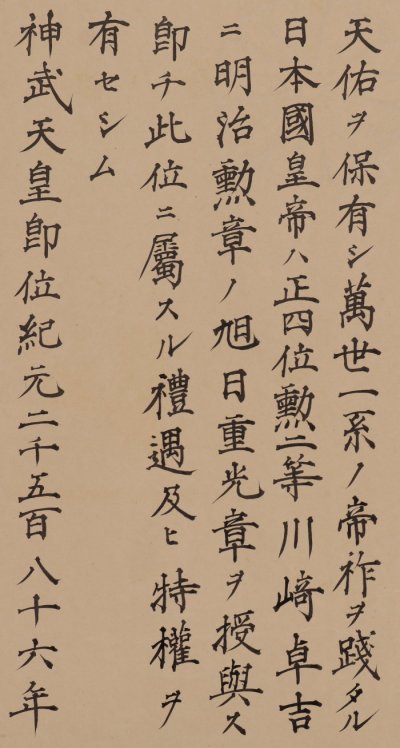 天佑ヲ保有シ萬世一系ノ帝祚ヲ踐タル
日本國皇帝ハ正四位勲二等川﨑卓吉
ニ明治勲章ノ旭日重光章ヲ授與ス
卽チ此位ニ屬スル禮遇及ヒ特權ヲ
有セシム
神武天皇卽位紀元二千五百八十六年